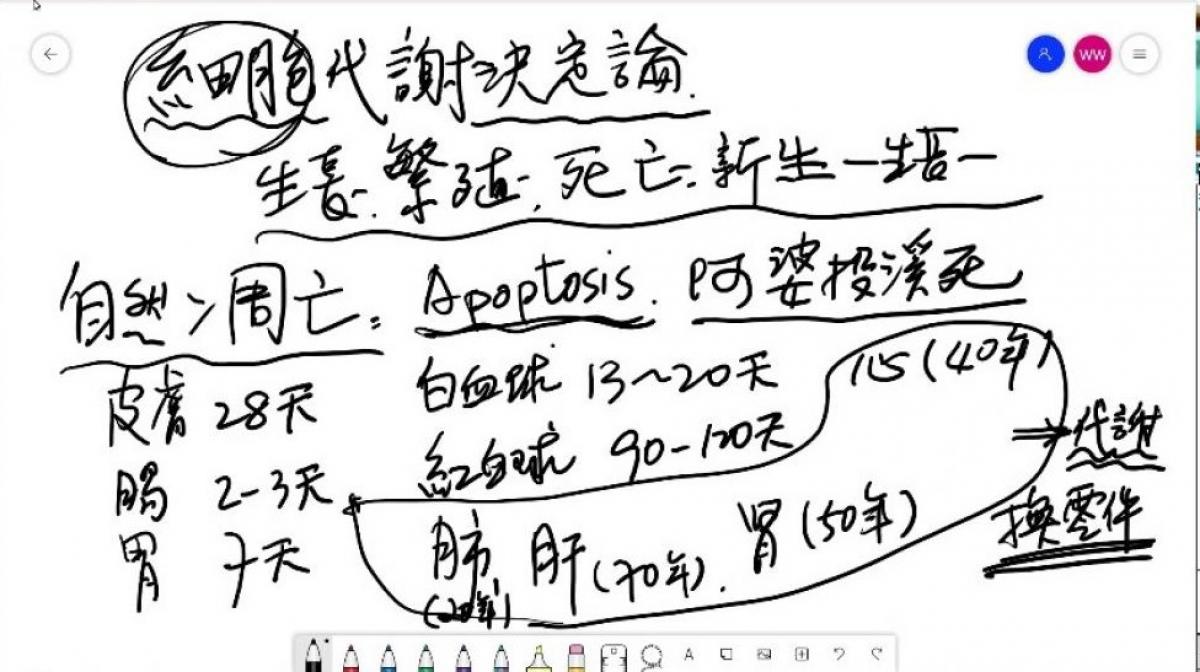 細胞代謝決定論.
生長.繁殖.死亡.新生一生唇一
自然>周亡: Apoptosis. 阿婆投溪死
皮膚 28天 白血球 13~20天 心(40年)
腸 2-3天 紅血球 90-120天 ⇒代謝
胃 7天 肺(20年) 肝(70年). 腎(50年) 換零件
WW
A